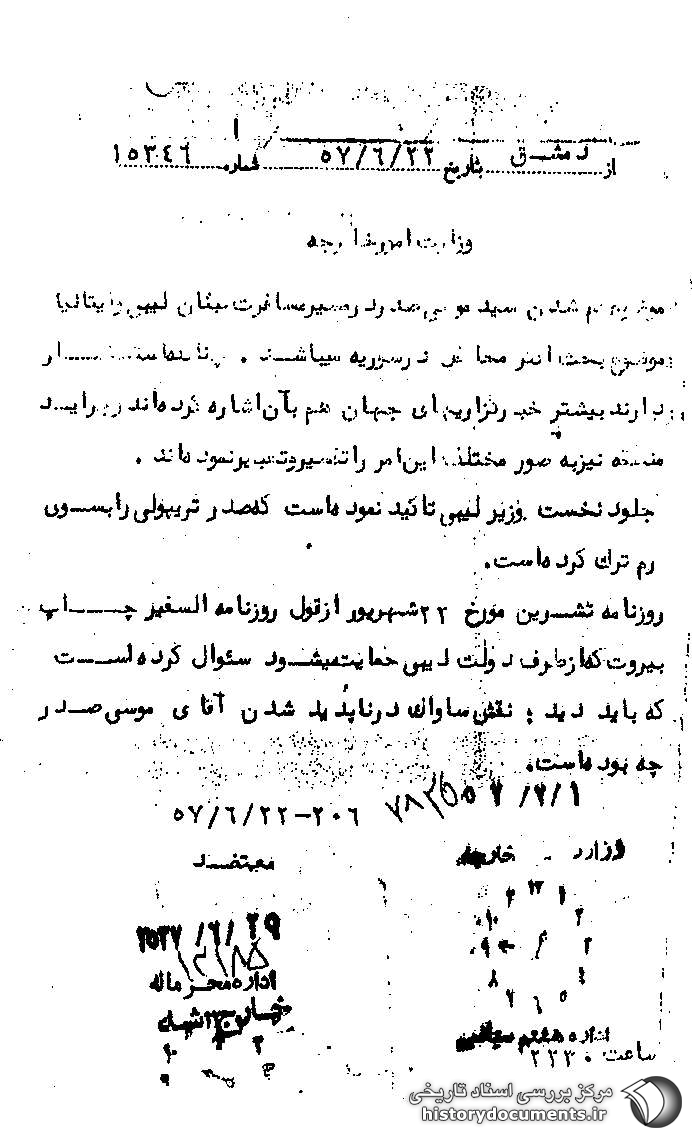 از دمشق بتاریخ ۵۷/۶/۲۲ شماره ۱۵۳۴۶
وزارت امورخارجه
شدن سید موسی صدر درمسیرمسافرت میان لیبی وایتالیا
موضوع بحث اکثر محافل درسوریه میباشد .
دارند بیشتر خبرگزاریهای جهان هم بآن اشاره کرده‌اند
نیزبه صور مختلف این امر را تفسیروتعبیرنموده‌اند .
جلود نخست وزیر لیبی تاکید نموده‌است که‌صدر تریپولی رابسوی
رم ترک کرده‌است.
روزنامه تشرین مورخ ۲۲شهریور ازقول روزنامه السفیر چاپ
بیروت که‌ازطرف دولت لیبی حمایت‌میشود سئوال کرده‌است
که باید دید ؛ نقش‌ساواک درناپدید شدن آقای موسی‌صدر
چه بوده‌است.
۵۷/۷/۱
۵۷/۶/۲۲-۲۰۶
وزارت خارجه
معتضد
۲۵۳۷/۶/۲۹
اداره محرمانه
اداره هفتم سیاسی
ساعت ۲۲۳۰
مرکز بررسی اسناد تاریخی
historydocuments.ir